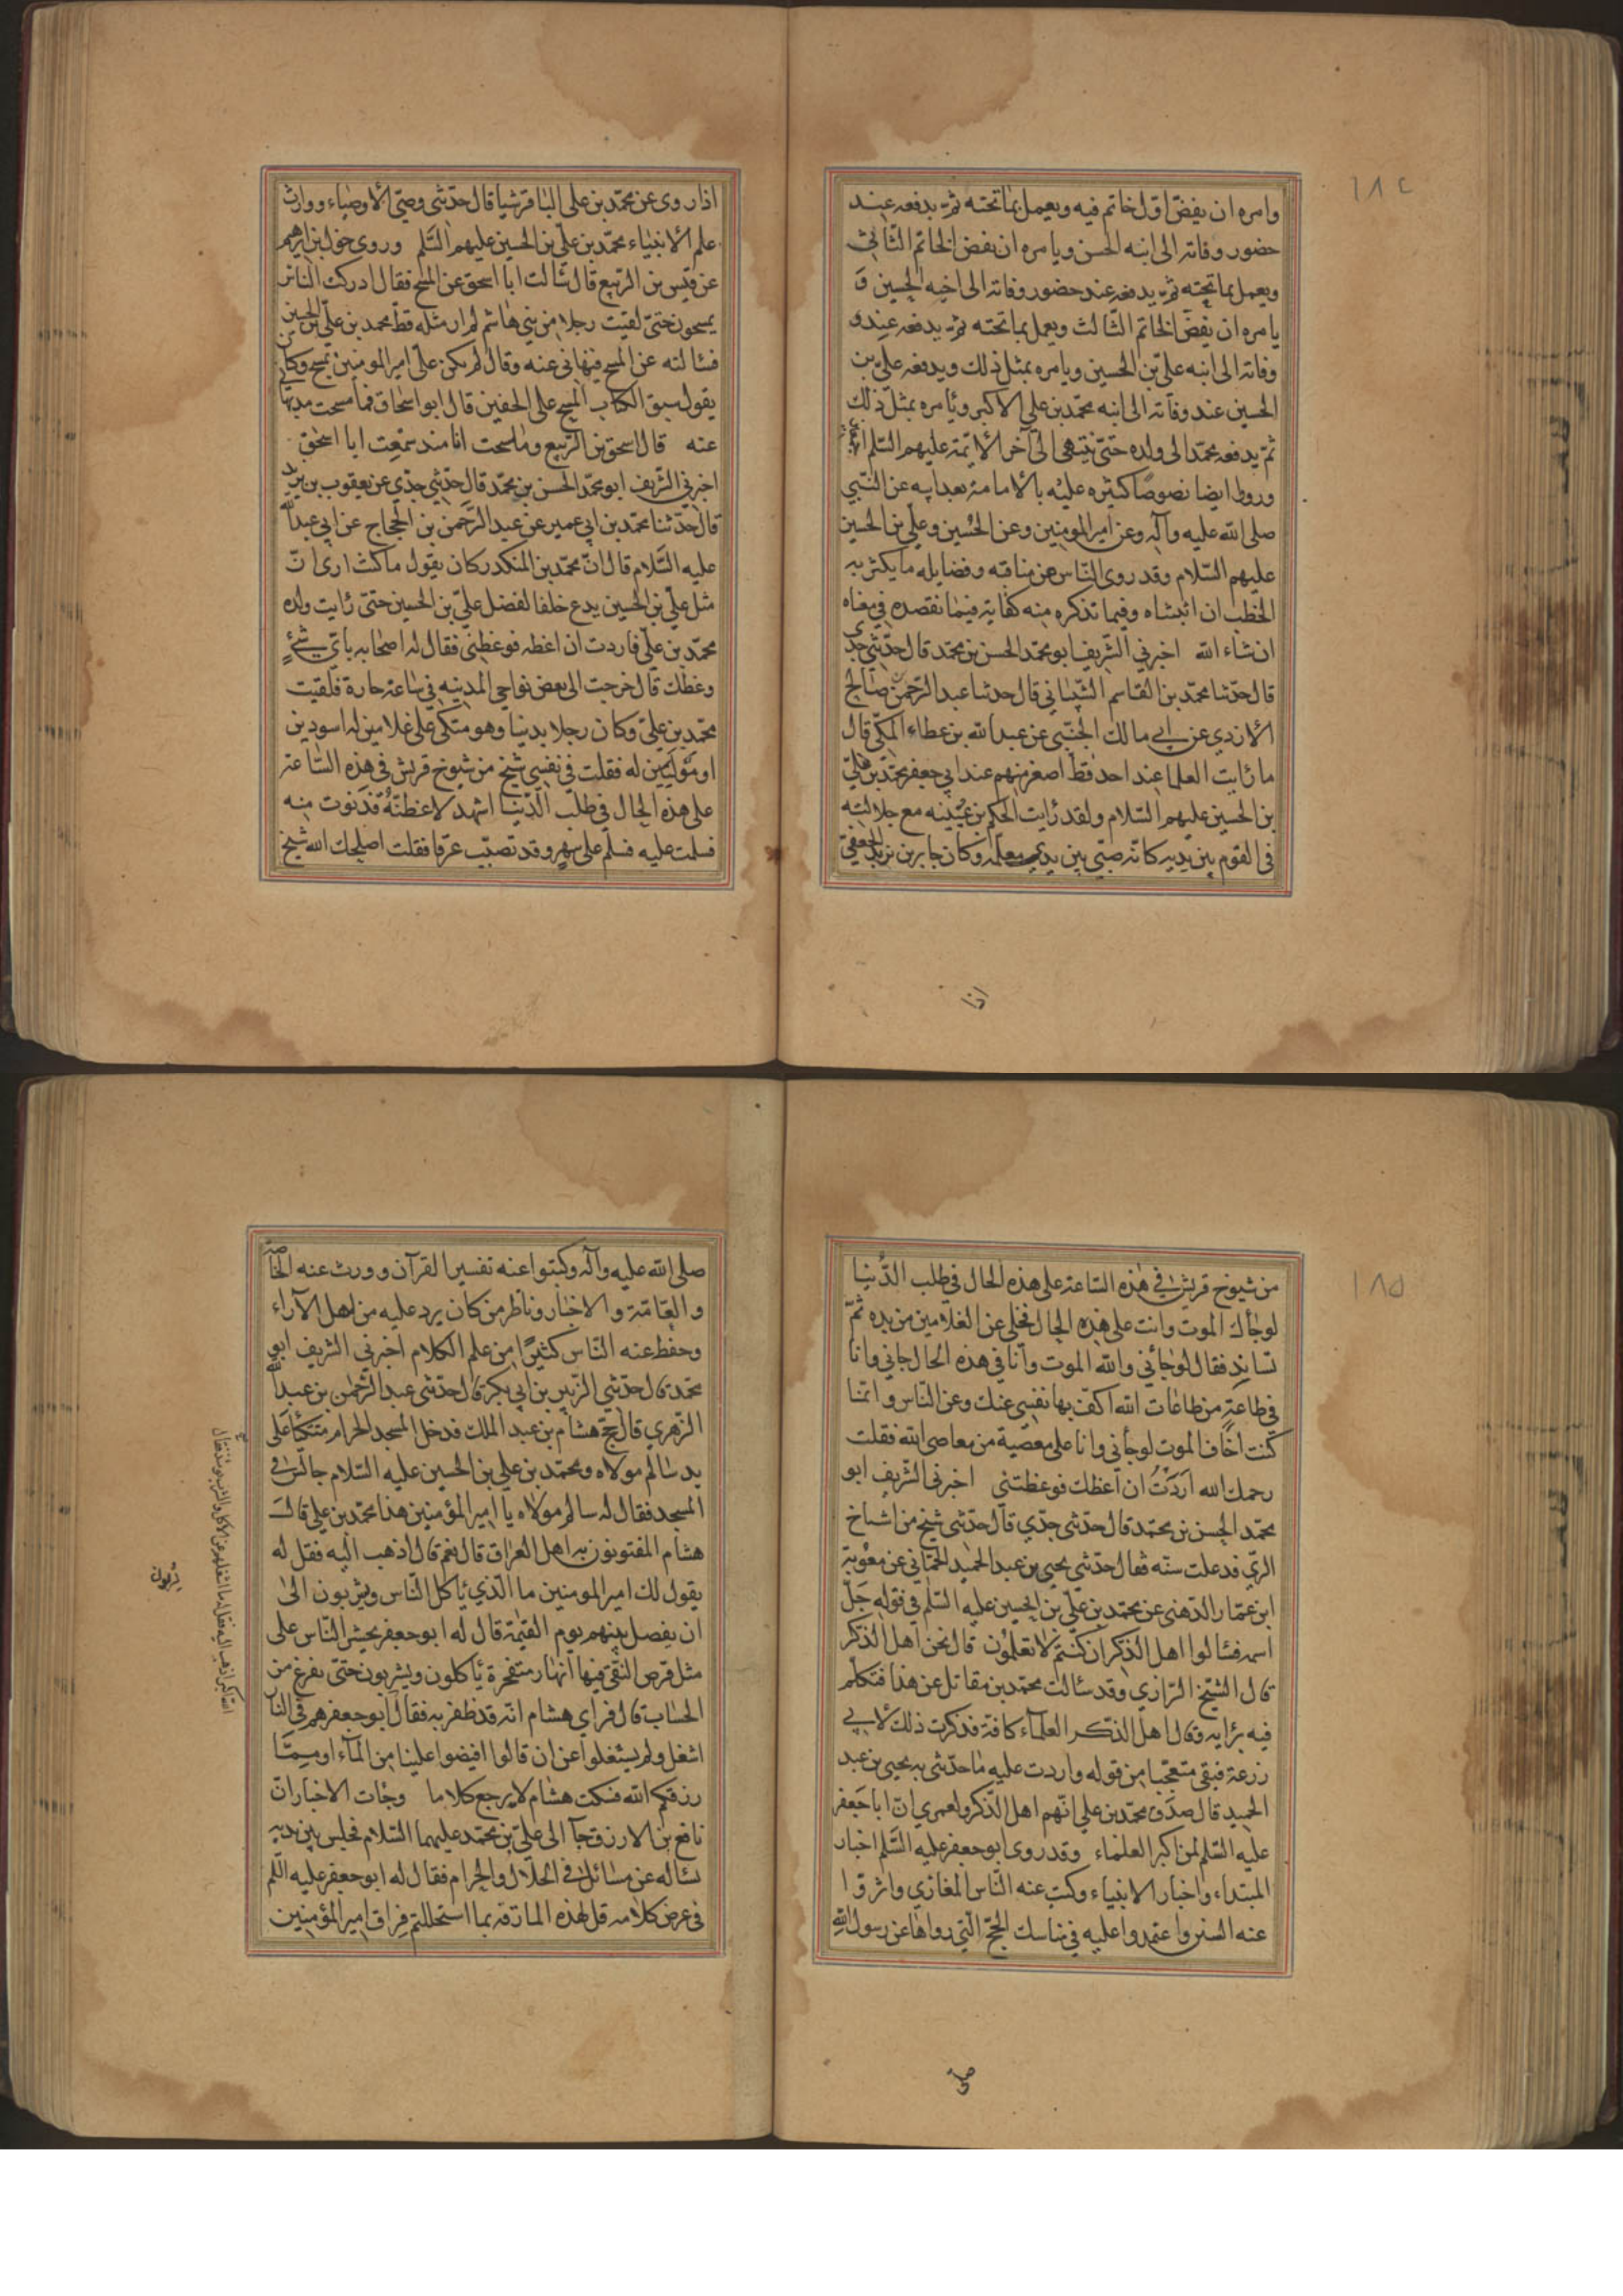 ١٨٤
وامره ان يفض اول خاتم فيه ويعمل بما تحته ثم يدفعه عند
حضور وفاته الى ابنه الحسن ويامره ان يفض الخاتم الثانى
ويعمل بما تحته ثم يدفعه عند حضور وفاته الى اخيه الحسين و
يامره ان يفض الخاتم الثالث ويعمل بما تحته ثم يدفعه عند
وفاته الى ابنه على بن الحسين ويامره بمثل ذلك ويدفعه على بن
الحسين عند وفاته الى ابنه محمد بن على الاكبر ويأمره بمثل ذلك
ثم يدفعه محمد الى ولده حتى ينتهى الى آخر الائمة عليهم السلم
ورووا ايضا نصوصا كثيره عليه بالامامة بعد ابيه عن النبي
صلى الله عليه وآله وعن امير المومنين وعن الحسين وعلي بن الحسين
عليهم السلام وقد روى الناس من مناقبه وفضايله ما يكثر به
الخطب ان اثبتناه وفيما نذكره منه كفاية فيما نقصده في معناه
ان شاء الله اخبرني الشريف ابو محمد الحسن بن محمد قال حدثني جدي
قال حدثنا محمد بن القاسم الشيباني قال حدثنا عبد الرحمن بن صالح
الأزدي عن ابي مالك الجنبي عن عبد الله بن عطاء المكي قال
ما رايت العلما عند احد قط اصغر منهم عند ابي جعفر محمد بن علي
بن الحسين عليهم السلام ولقد رايت الحكم بن عيينه مع جلالته
فى القوم بين يديه كانه صبي بين يدي معلمه وكان جابر بن يزيد الجعفي
اذا
اذا روى عن محمد بن على الباقر شيا قال حدثنى وصي الاوصياء ووارث
علم الانبياء محمد بن علي بن الحسين عليهم السلم وروى مخول بن ابرهيم
عن قيس بن الربيع قال سالت ابا اسحق عن المسح فقال ادركت الناس
يمسحون حتى لقيت رجلا من بني هاشم لم ار مثله قط محمد بن علي بن الحسين
فسالته عن المسح فنهاني عنه وقال لم يكن علي امير المومنين يمسح وكان
يقول سبق الكتاب المسح على الخفين قال ابو اسحاق فما مسحت منذ نهاني
عنه قال اسحق بن الربيع وما مسحت انا منذ سمعت ابا اسحق
اخبرني الشريف ابو محمد الحسن بن محمد قال حدثني جدي عن يعقوب بن يزيد
قال حدثنا محمد بن ابي عمير عن عبد الرحمن بن الحجاج عن ابي عبد الله
عليه السلام قال ان محمد بن المنكدر كان يقول ما كنت ارى ان
مثل علي بن الحسين يدع خلفا لفضل علي بن الحسين حتى رايت ولده
محمد بن علي فاردت ان اعظه فوعظني فقال له اصحابه بأي شئ
وعظك قال خرجت الى بعض نواحي المدينه في ساعة حارة فلقيت
محمد بن علي وكان رجلا بدنيا وهو متكئ على غلامين له اسودين
او موليين له فقلت في نفسي شيخ من شيوخ قريش في هذه الساعة
على هذه الحال في طلب الدنيا اشهد لاعظنه فدنوت منه
فسلمت عليه فسلم على ببهر وقد تصبب عرقا فقلت اصلحك الله شيخ
١٨٥
من شيوخ قريش في هذه الساعة على هذه الحال في طلب الدنيا
لو جأك الموت وانت على هذه الحال فخلى عن الغلامين من يده ثم
تساند فقال لو جائني والله الموت وانا في هذه الحال جاني وانا
في طاعة من طاعات الله اكف بها نفسي عنك وعن الناس وانما
كنت اخاف الموت لو جأني وانا على معصية من معاصى الله فقلت
رحمك الله اردت ان اعظك فوعظتني اخبرنى الشريف ابو
محمد الحسن بن محمد قال حدثنى جدي قال حدثني شيخ من اشياخ
الري قد علت سنه فقال حدثني يحيى بن عبد الحميد الحماني عن معوية
ابن عمار الدهني عن محمد بن علي بن الحسين عليه السلم في قوله جل
اسمه فسالوا اهل الذكر ان كنتم لا تعلمون قال نحن اهل الذكر
قال الشيخ الرازي وقد سالت محمد بن مقاتل عن هذا فتكلم
فيه برايه وقال اهل الذكر العلماء كافة فذكرت ذلك لابي
زرعة فبقى متعجبا من قوله واردت عليه ما حدثني به يحيى بن عبد
الحميد قال صدق محمد بن علي انهم اهل الذكر ولعمري ان ابا جعفر
عليه السلم لمن اكبر العلماء وقد روى ابو جعفر عليه السلم اخبار
المبتداء واخبار الانبياء وكتب عنه الناس المغازي واثروا
عنه السنن واعتمدوا عليه في مناسك الحج التي رواها عن رسول الله
صلى
صلى الله عليه وآله وكتبوا عنه تفسير القرآن وورت عنه الخاصة
والعامة والاخبار وناظر من كان يرد عليه من اهل الآراء
وحفظ عنه الناس كثيرا من علم الكلام اخبرني الشريف ابو
محمد قال حدثني الزبير بن ابي بكر قال حدثنى عبد الرحمن بن عبد الله
الزهري قال حج هشام بن عبد الملك فدخل المسجد الحرام متكئا على
يد سالم مولاه ومحمد بن علي بن الحسين عليه السلام جالس في
المسجد فقال له سالم مولاه يا امير المؤمنين هذا محمد بن علي قال
هشام المفتونون به اهل العراق قال نعم قال اذهب اليه فقل له
يقول لك امير المومنين ما الذي ياكل الناس ويشربون الى
ان يفصل بينهم يوم القيمة قال له ابو جعفر يحشر الناس على
مثل قرص النقي فيها انهار متفجرة يأكلون ويشربون حتى يفرغ من
الحساب قال فراي هشام انه قد ظفر به فقال ابو جعفر هم في النار
اشغل ولم يشغلوا عن ان قالوا افيضوا علينا من الماء او مما
رزقكم الله فسكت هشام لا يرجع كلاما وجأت الاخبار ان
نافع بن الازرق جآ الى علي بن محمد عليهما السلام فجلس بين يديه
يساله عن مسائل في الحلال والحرام فقال له ابو جعفر عليه السلم
في عرض كلامه قل لهذه المارقة بما استحللتم فراق امير المؤمنين
الله اكبر اذهب اليه فقل له ما اشغلهم عن الاكل والشرب يومئذ فقال